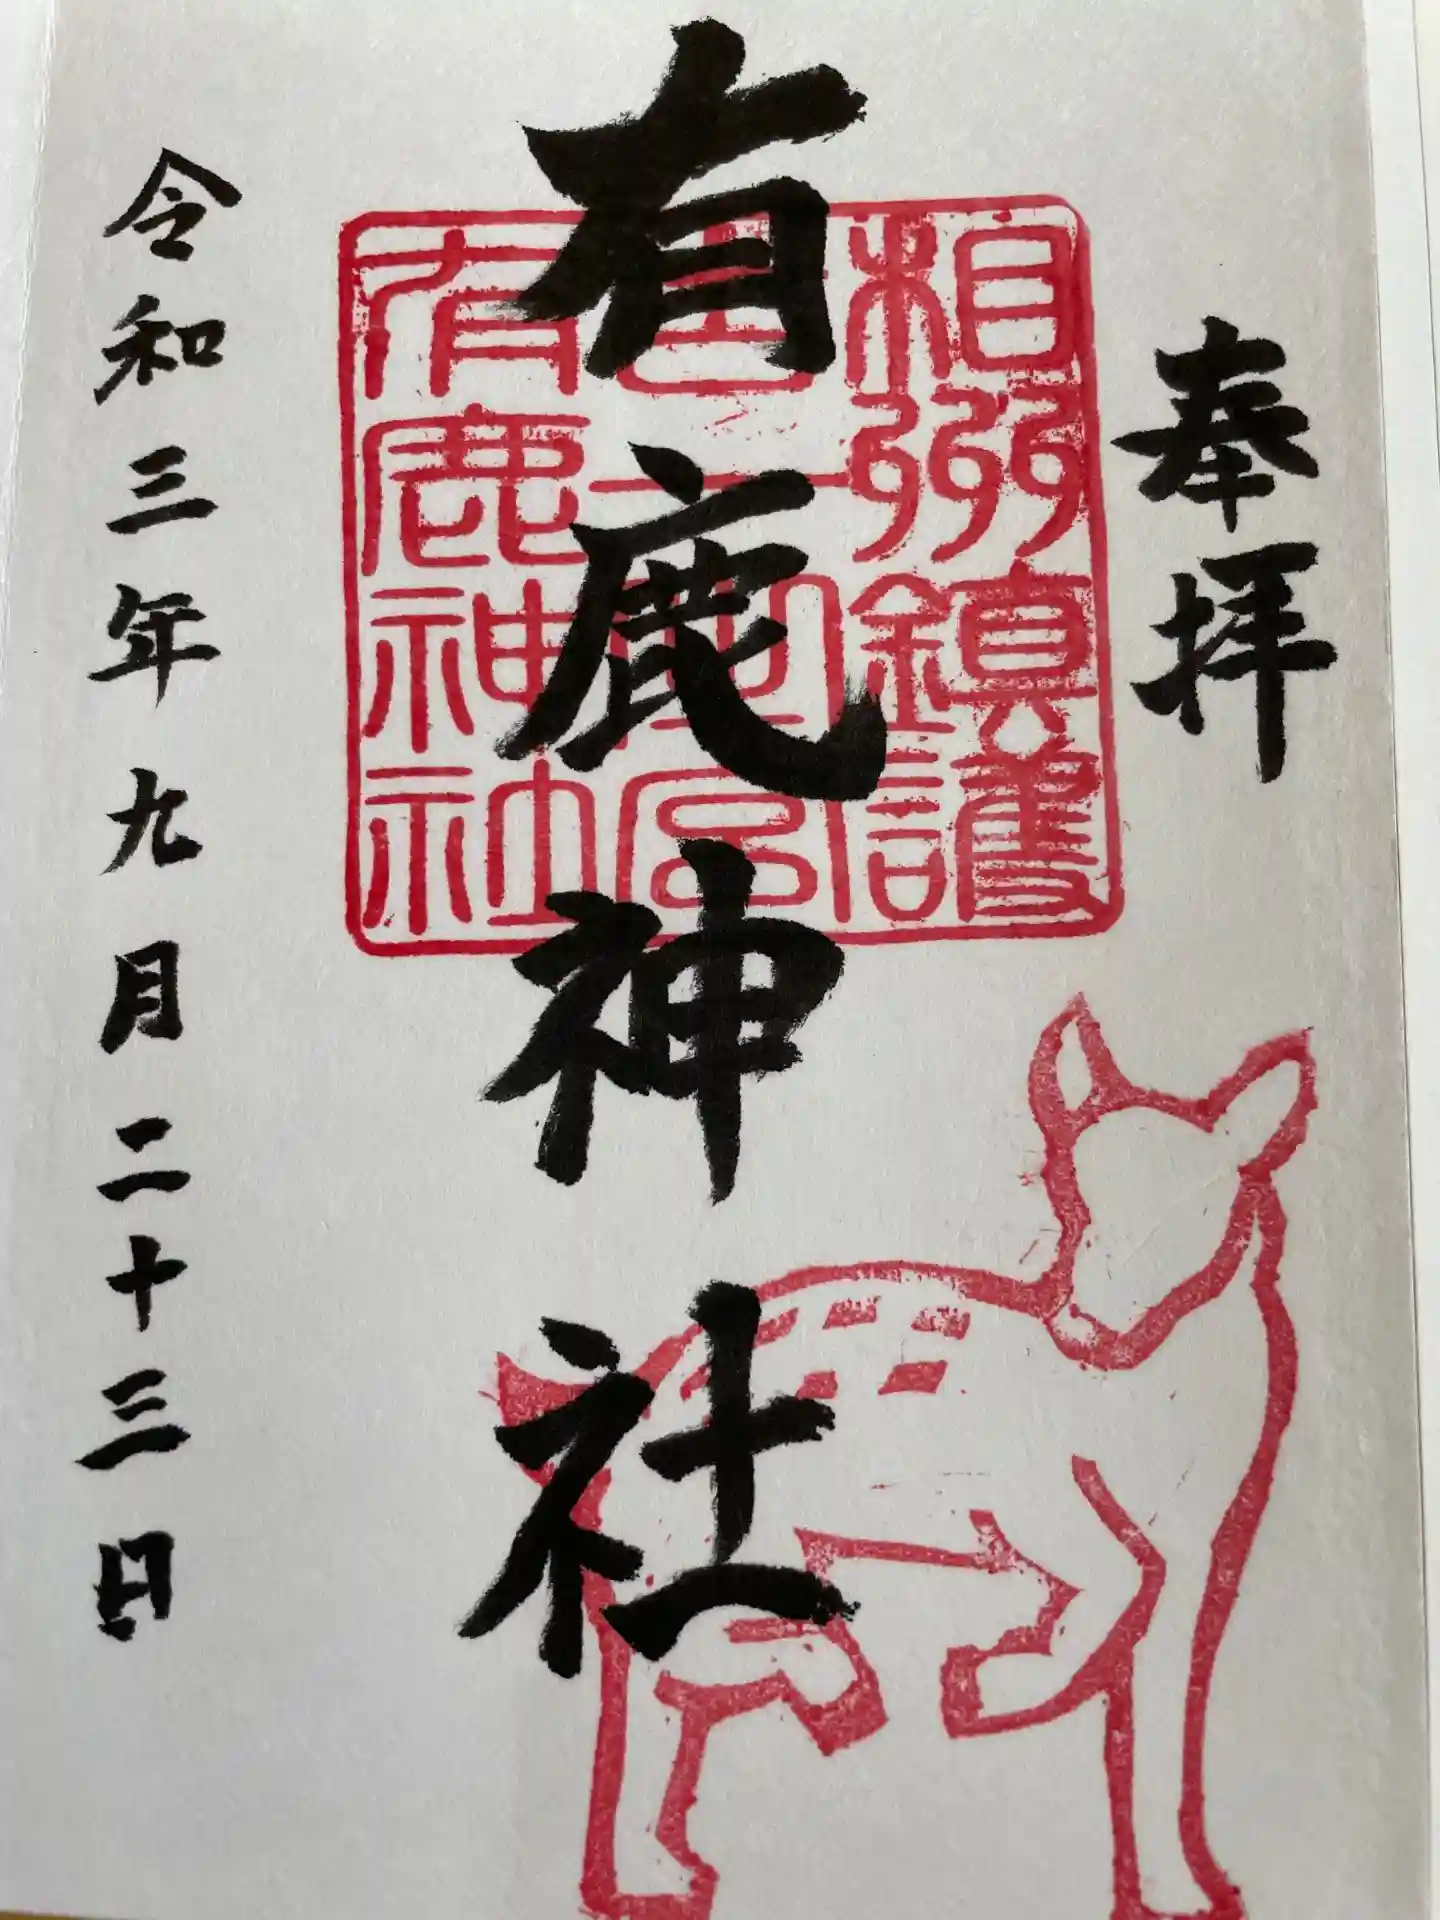 奉拝
相州鎮護
有鹿神社
有鹿神社
令和三年九月二十三日